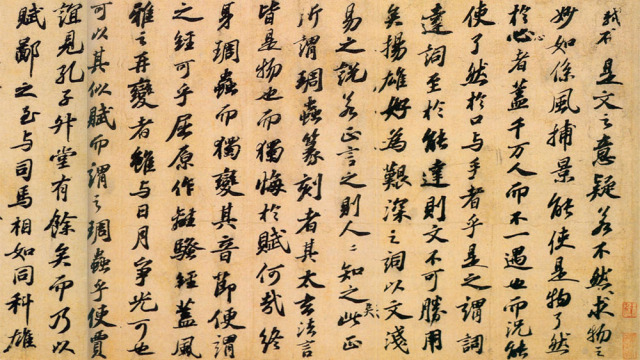 是文之意疑若不然求物之
妙如係風捕景能使是物了然
於心者蓋千万人而不一遇也而況能
使了然於口与手者乎是之謂詞
達詞至於能達則文不可勝用
矣揚雄好為艱深之詞以文淺
易之說若正言之則人〻知之矣此正
所謂琱蟲篆刻者其太玄法言
皆是物也而獨悔於賦何哉終
身琱蟲而獨變其音節便謂
之經可乎屈原作離騷經蓋風
雅之再變者雖与日月爭光可也
可以其似賦而謂之琱蟲乎使賈
誼見孔子升堂有餘矣而乃以
賦鄙之至与司馬相如同科雄